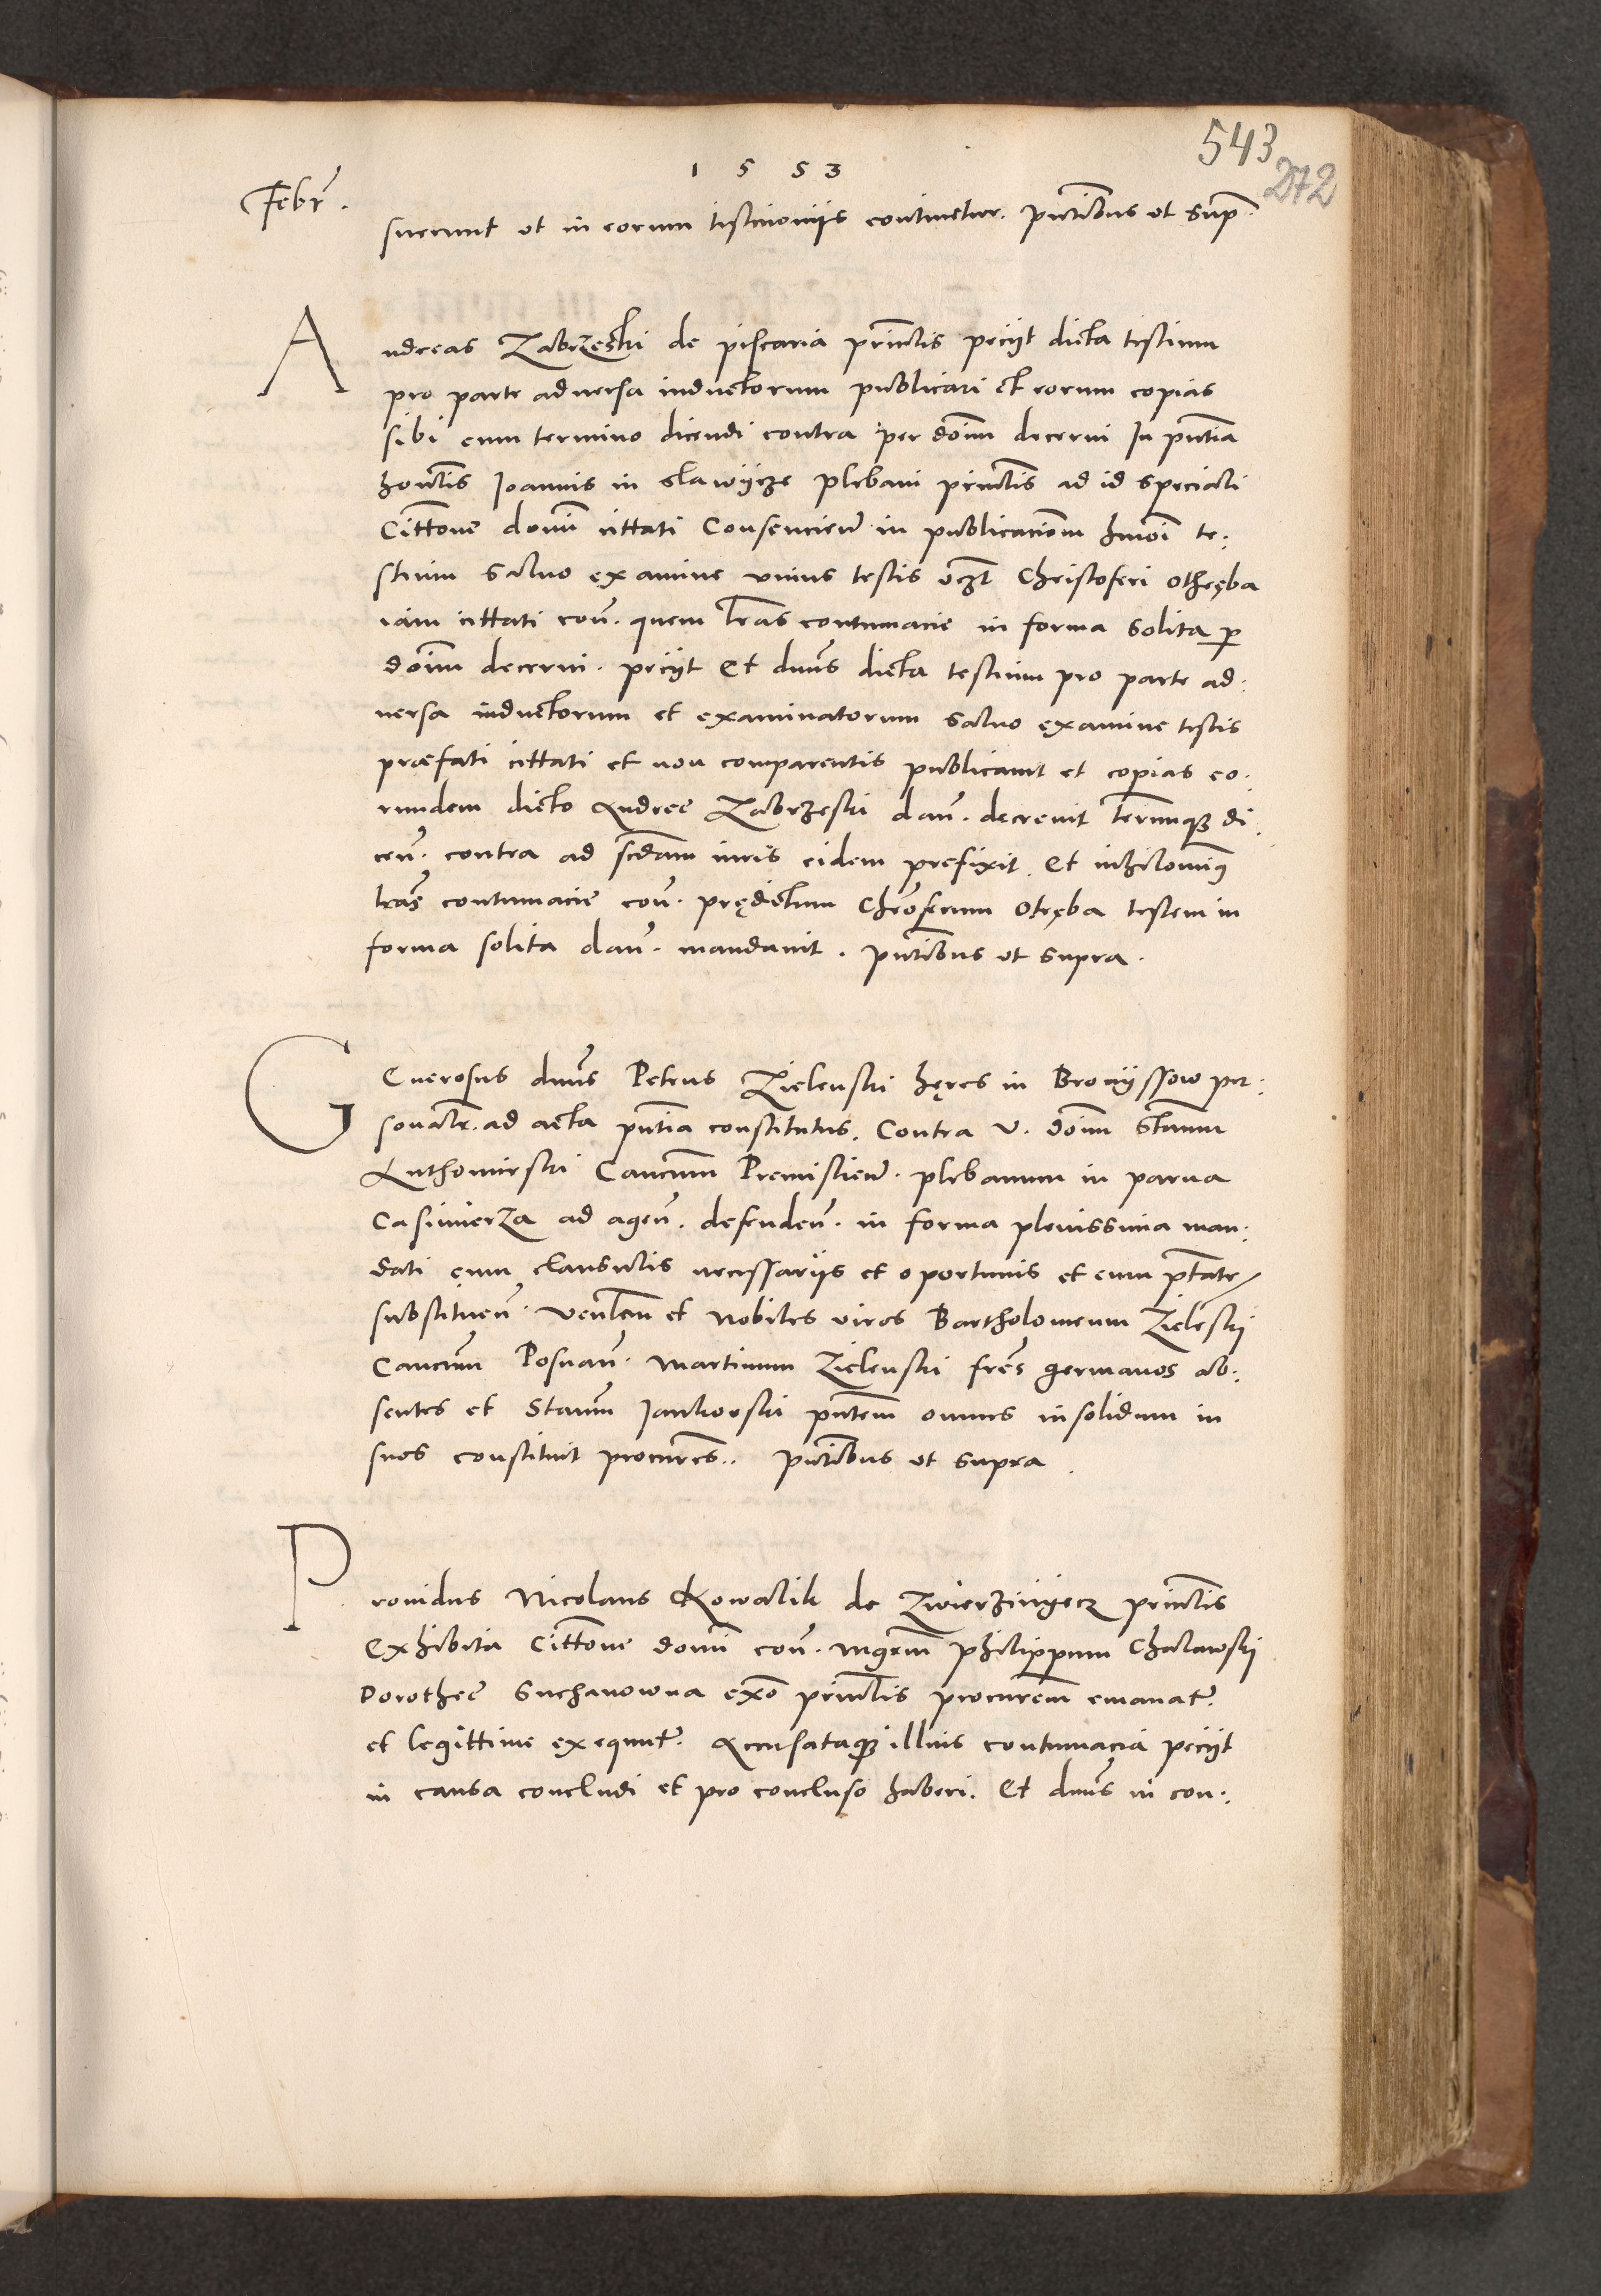 543
272
1 5 5 3
Febr.
suerunt ut in eorum testimoniis continetur. Pntibus ut sup.
Andreas Zabrzeski de piscaria prinlis peciit dicta testium
pro parte adversa inductorum publicari et eorum copias
sibi cum termino dicendi contra per dnm decerni In pntia
honlis Joannis in Slawijcze plebani prinlis ad id speciali
Cittone domi cittati Consencien in publicacionem hmoi te:
stium salvo examine unius testis vczt Christoferi Othręba
iam cittati con. quem lras contumacie in forma solita p
dnm decerni. peciit Et dnus dicta testium pro parte ad:
versa inductorum et examinatorum salvo examine testis
præfati cittati et non comparentis publicavit et copias eo:
rundem dicto Andree Zabrzeski dan. decrevit Terminq3 di
cen. contra ad scdam iuris eidem prefixit. Et nihilomin9
lras contumacie con. prędictum Chroferum Otręba testem in
forma solita dan. mandavit. Pntibus ut supra.
GEnerosus dnus Petrus Zielenski hęres in Bronijssow per:
sonalr. ad acta pntia constitutus. Contra V. dnm Stanm
Luthomirski Cancum Premislien. plebanum in parva
Casimierza ad agen. defenden. in forma plenissima man:
dati cum clausulis necessariis et oportunis et cum ptate
substituen. Venlem et Nobiles viros Bartholomeum Zieleskj
Cancum Posnan. Martinum Zielenski fres germanos ab:
sentes et Stanm Jankowski pntem omnes insolidum in
suos constituit procurres.. Pntibus ut supra.
Providus Nicolaus Kowalik de Zwierzijnijecz prinlis
Exhibita Cittone domi con. Mgrum Philippum Chalawskj
Dorothee Suchanowna exo prinlis procurrem emanat.
et legittime exequut. Accusataq3 illius contumacia peciit
in causa concludi et pro concluso haberi. Et dnus in con: